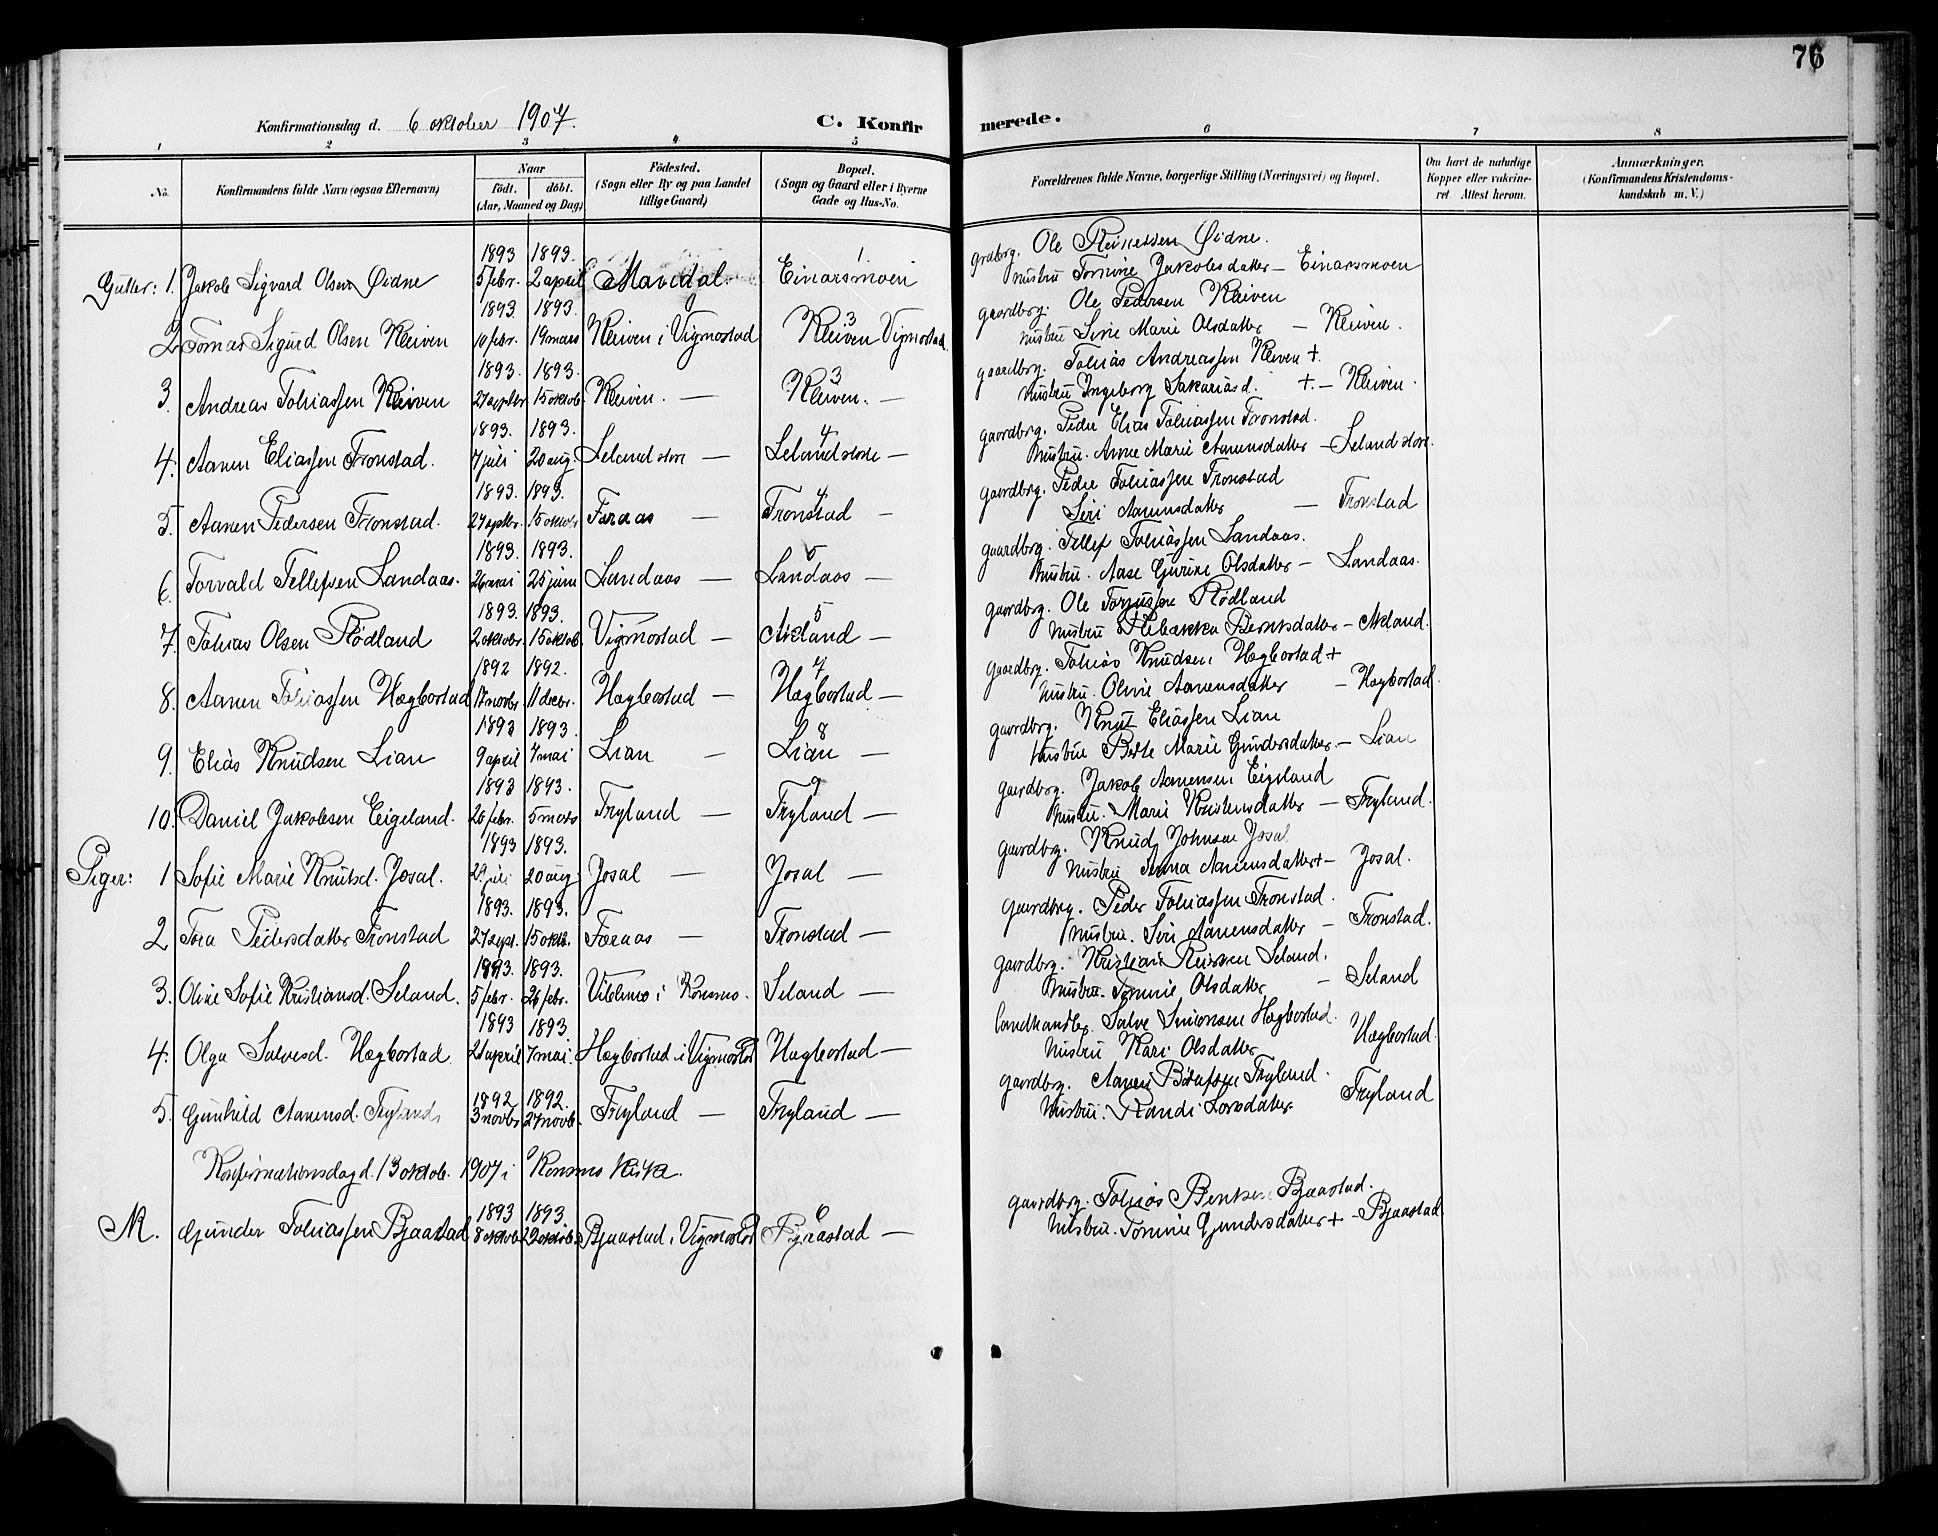 76
Konfirmationsdag d. 6 oktober 1907. C. Konfirmerede.
1 2 3 4 5 6 7 8
No. Konfirmandens fulde Navn (ogsaa Efternavn) Naar født. døbt. (Aar, Maaned og Dag) Födested. (Sogn eller By og paa Landet tillige Gaard) Bopæl. (Sogn og Gaard eller i Byerne Gade og Hus-No. Forældrenes fulde Navne, borgerlige Stilling (Næringsvei) og Bopæl. Om havt de naturlige Kopper eller vakcineret. Attest herom. Anmærkninger. (Konfirmandens Kristendomskundskab m. V.)
Gutter: 1. Jakob Sigvard Olsen Øidne 1893 5 febr. 1893. 2 april Mandal. 1 Einarsmoen grdbrg. Ole Øidne.
Hustru Tomine Jakobsdatter – Einarsmoen
2. Tomas Sigurd Olsen Kleiven 1893. 10 febr. 1893. 19 mars Kleiven i Vigmostad 3 Kleiven Vigmostad gaardbrg. Ole Pedersen Kleiven
Hustru Sine Marie Olsdatter – Kleiven.
3. Andreas Tobiassen Kleiven 1893. 27 septbr. 1893. 15 oktob. Kleiven. — 3 Kleiven. — gaardbrg. Tobias Andreassen Kleiven +
Hustru Ingeborg Sakariasd. + – Kleiven.
4. Aanen Eliassen Tronstad. 1893. 7 juli 1893. 20 aug. Seland store — 4 Seland store — gaardbrg. Peder Elias Tobiassen Tronstad.
Hustru. Anne Marie Aanensdatter – Seland store.
5. Aanen Pedersen Tronstad. 1893. 27 septbr. 1893. 15 oktobr Faraas — 4 Tronstad — gaardbrg. Peder Tobiassen Tronstad
Siri Aanensdatter — Tronstad
6. Torvald Tellefsen Landaas. 1893. 26 mai 1893. 25 juni Landaas — 5 Landaas — gaardbrg. Tellef Tobiassen Landaas.
Hustru. Aase Gurine Olsdatter – Landaas.
7. Tobias Olsen Rødland 1893. 2 oktobr. 1893. 15 oktob. Vigmostad — 5 Akland — gaardbrg. Ole Rødland
Hustru Rebekka Berntsdatter – Akland.
8. Aanen Tobiassen Hægbostad 1892 17 novbr 1892. 11 decbr. Hægbostad — 4 Hægbostad — gaardbrg. Tobias Knudsen Hægbostad +
Hustru. Oline Aanensdatter – Hægbostad.
9. Elias Knudsen Lian 1893 9 april 1893. 7 mai Lian — 8 Lian — gaardbrg. Knut Eliassen Lian
Hustru Berte Marie Gundersdatter – Lian
10. Daniel Jakobsen Eigeland. 1893 26 febr. 1893. 5 mars Tryland — 9 Tryland — gaardbrg. Jakob Aanensen Eigeland
Hustru. Marie Kristensdatter – Tryland.
Piger: 1 Sofie Marie Knutsd. Josal. 1893 29 juli 1893. 20 aug Josal — Josal — gaardbrg. Knud Johnsen Josal
Hustru Anna Aanensdatter + – Josal.
2 Tora Pedersdatter Tronstad 1893. 27 sept. 1893. 15 oktb. Faraas — Tronstad — gaardbrg. Peder Tobiassen Tronstad.
Hustru. Siri Aanensdatter – Tronstad.
3. Oline Sofie Kristiansd. Seland. 1893. 5 febr. 1893. 26 febr. i Konsmo. Seland — gaardbrg. Kristian Seland.
Hustru. Tomine Olsdatter – Seland
4. Olga Salvesd. Hægbostad 1893 21 april 1893 7 mai. Hægbostad i Vigmostad Hægbostad — landhandler. Salve Simonsen Hægbostad.
Hustru Kari Olsdatter Hægbostad
5. Gunhild Aanensd. Tryland 1892 3 novbr 1892. 27 novb. Tryland — Tryland — gaardbrg. Aanen Tryland.
Hustru. Randi Larsdatter. Tryland
Konfirmationsdag d. 13 oktob. 1907 i Konsmo kirke.
N. Gunder Tobiassen Bjaastad 1893 8 oktob. 1893. 29 oktob. Bjaastad i Vigmostad 6 Bjaastad — gaardbrg. Tobias Bentsen Bjaastad.
Hustru. Tomine Gundersdatter + – Bjaastad